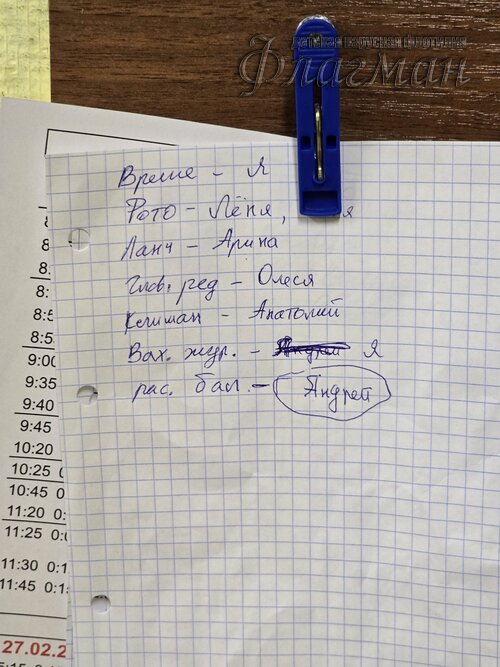 Флагман
Время - Я
Фото - Лёня, я
Ланч - Арина
Глав. ред - Олеся
- Анатолий
Вах. жур. - Андрей Я
рас. бал. - Андрей
8:
8:5
9:00
9:35
9:40
9:45
10:20
10:25 0:
10:45 0
11:20 0:
11:25 0:
11:30 0:1
11:45 0:1
27.02.2